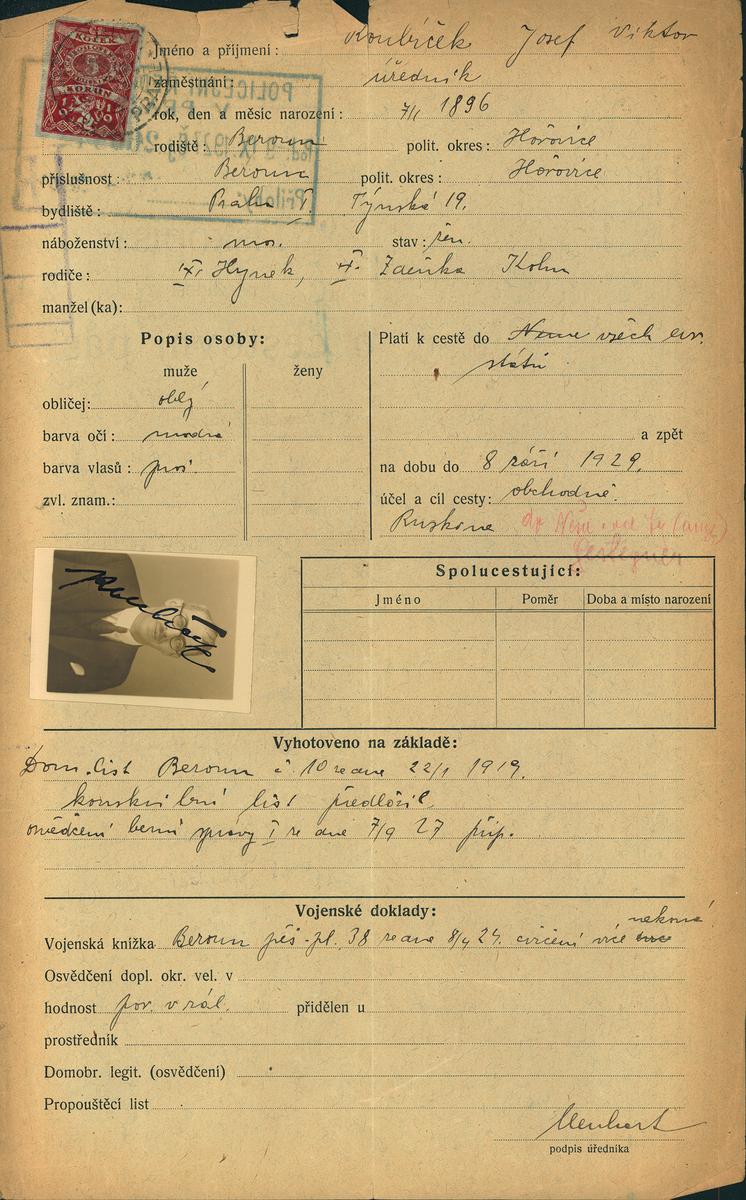 KOLEK
5
KORUN
Jméno a příjmení: Koubíček Josef Viktor
zaměstnání: úředník
rok, den a měsíc narození: 7/1 1896
rodiště: Beroun polit. okres: Hořovice
příslušnost Beroun polit. okres: Hořovice
bydliště: Praha I. Týnská 19.
náboženství: mos. stav: žen.
rodiče: Hynek, Zdeňka Kohn
manžel(ka):
Popis osoby:
muže ženy
obličej: oblý
barva očí: modrá
barva vlasů: pros.
zvl. znam.:
Platí k cestě do všech evr.
států
a zpět
na dobu do 8 září 1929.
účel a cíl cesty: obchodně.
Spolucestující:
Jméno Poměr Doba a místo narození
Vyhotoveno na základě:
Dom. list Beroun č 10 ze dne 22/1 1919.
list předložil,
osvědčení berní správy I ze dne 7/9 27 přip.
Vojenské doklady:
Vojenská knížka Beroun pěš. pl. 38 ze dne 8/4 24. cvičení více nekoná
Osvědčení dopl. okr. vel. v
hodnost por. v zál. přidělen u
prostředník
Domobr. legit. (osvědčení)
Propouštěcí list
podpis úředníka